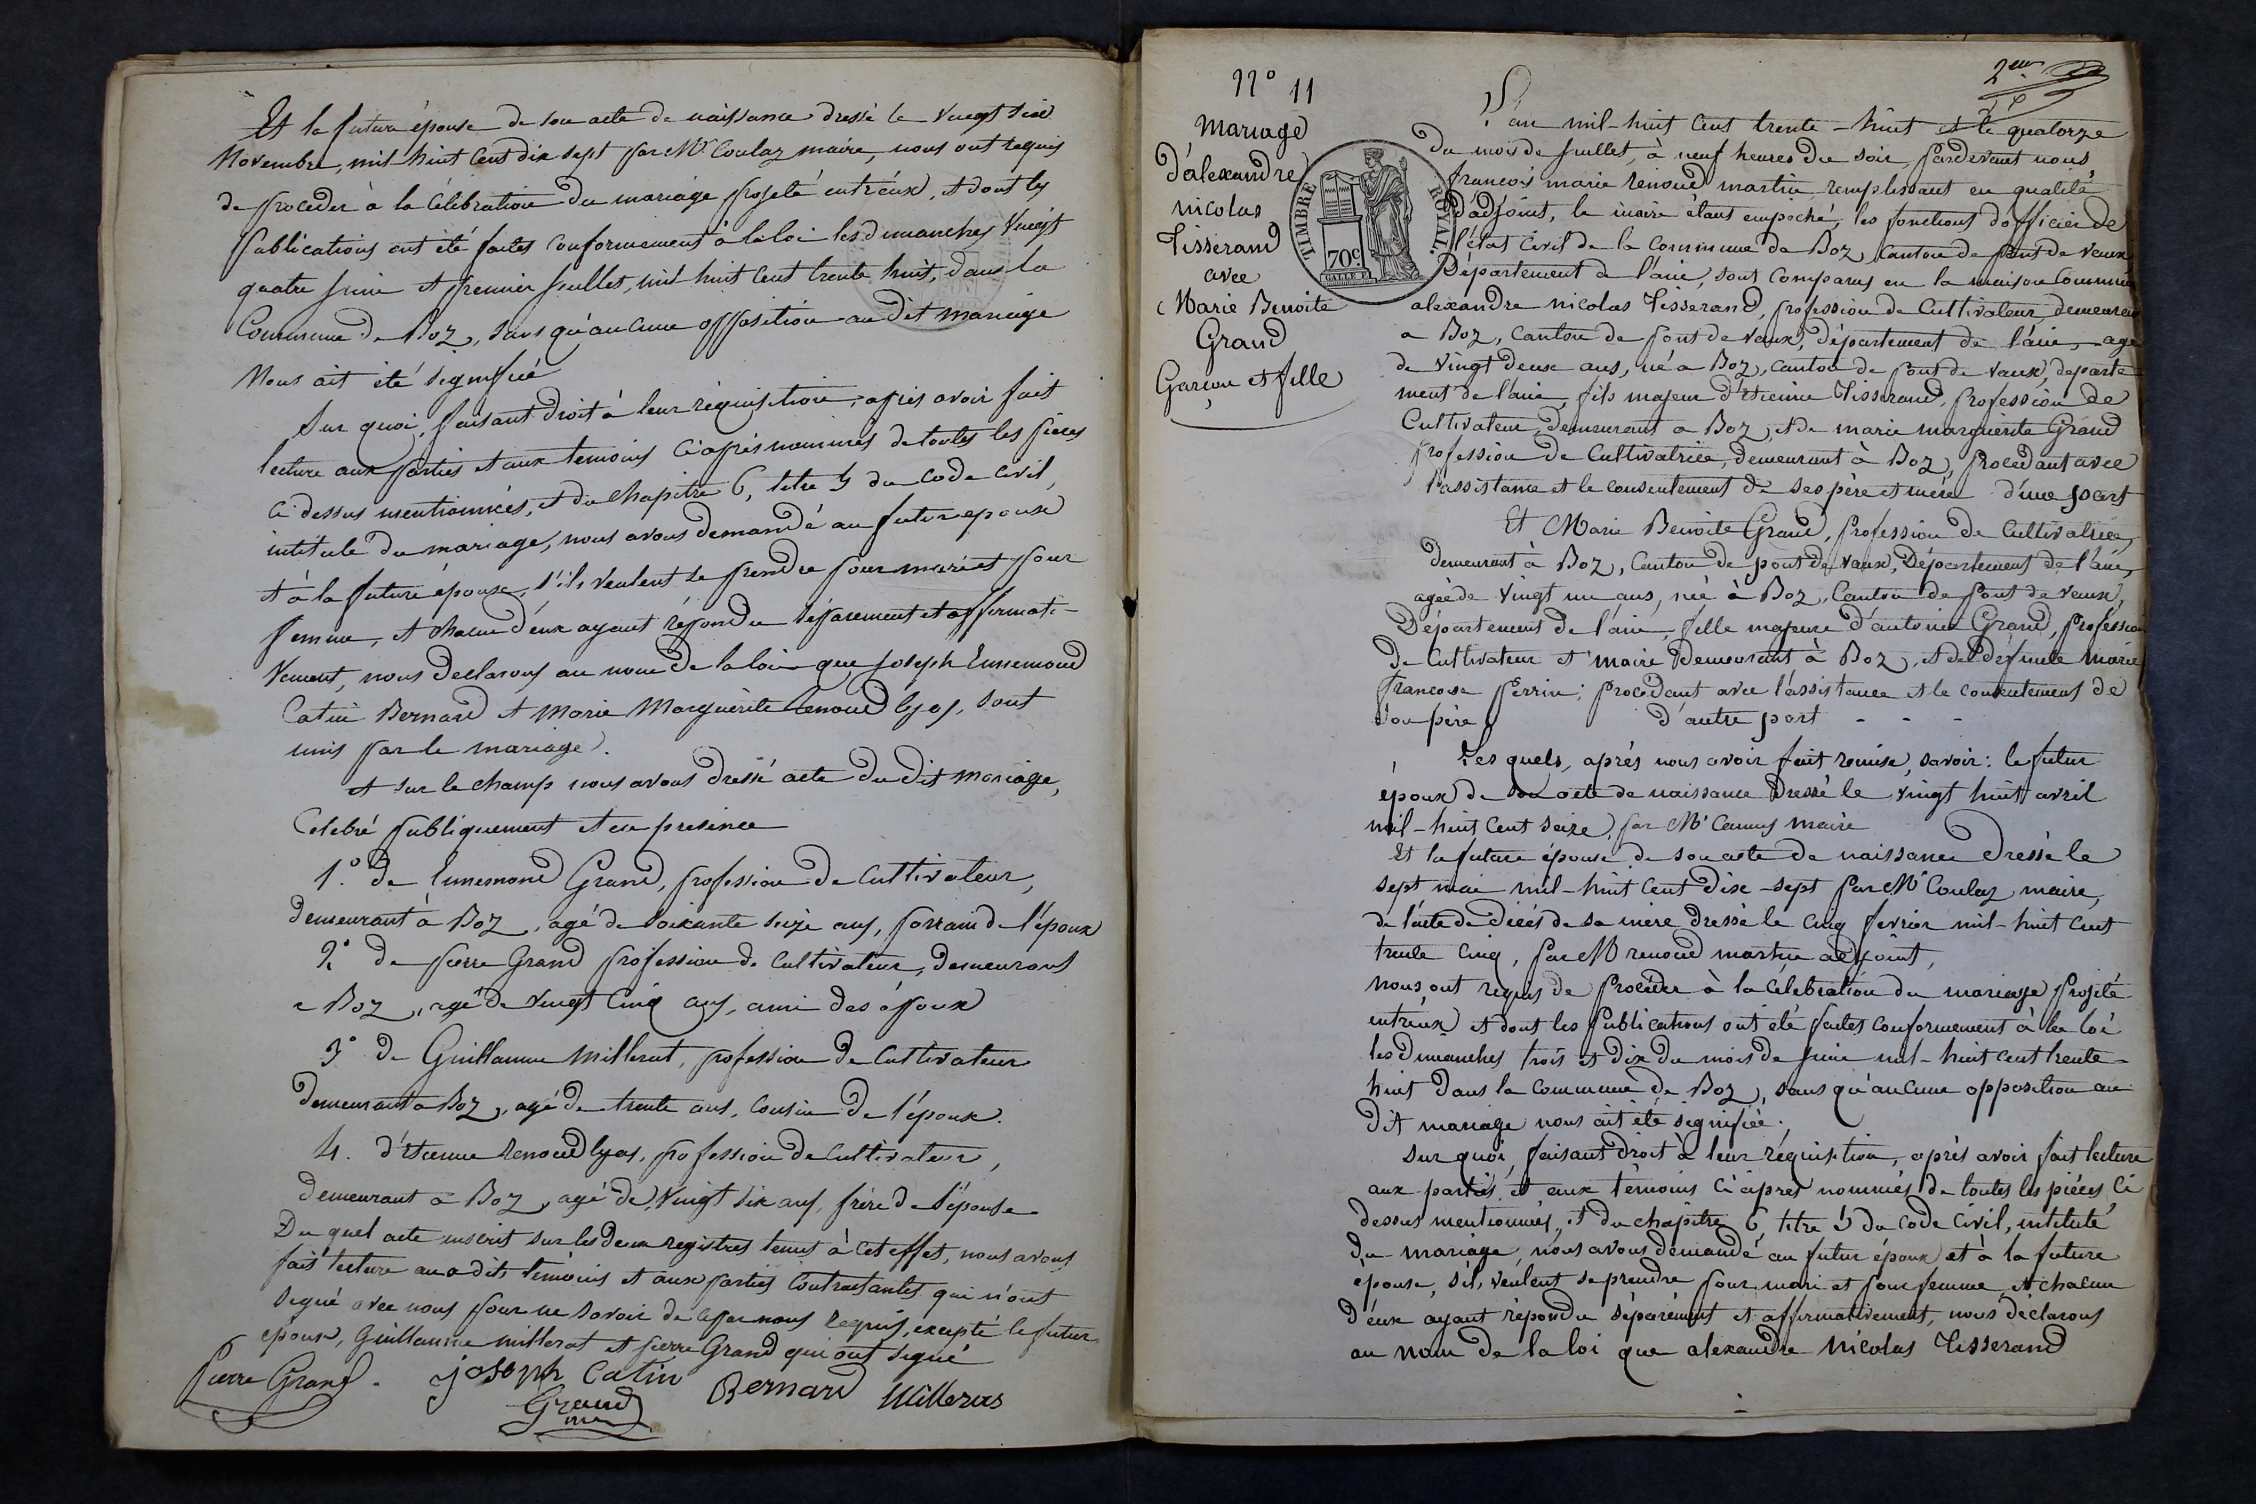 Et la future épouse de son acte de naissance dressé le vingt six
Novembre, mil huit cent dix sept par Mr Coulaz maire, nous ont requis
de proceder à la célébration du mariage projeté entréux, et dont les
publications ont été faites conformement à la loi les dimanches Vingt
quatre juin et premier juillet, mil huit cent trente huit, dans la
Commune de Boz, sans qu'aucune opposition au dit mariage
Nous ait été signifiée
Sur quoi, faisant droit à leur réquisition, après avoir fait
lecture aux parties et aux temoins ci après nommés de toutes les pièces
ci dessus mentionnées, et du chapitre 6, titre 5 du code civil,
intitulé du mariage, nous avons demandé au futur epoux
et à la future épouse, s'ils veulent se prendre pour mari et pour
femme, et chacun d'eux ayant répondu séparement et affirmati-
vement, nous declarons au nom de la loi que Joseph Ennemond
Catin Bernard et Marie Marguérite Renoud lyas, sont
unis par le mariage.
et sur le champ nous avons dressé acte du dit mariage,
Celebré publiquement et en presence
1.° de Ennemond Grand, profession de cultivateur,
demeurant à Boz, agé de soixante seize ans, parrain de l'époux
2° de pierre Grand profession de cultivateur, demeurant
a Boz, agé de vingt cinq ans, ami des époux
3° de Guillaume Millerat, profession de Cultivateur
demeurant a Boz, agé de trente ans, cousin de l'époux.
4. d'étienne Renoud lyas, profession de Cultivateur,
demeurant à Boz, agé de vingt six ans, frère de l'épouse
Du quel acte inscrit sur les deux registres tenus à cet effet, nous avons
fait lecture aux dits témoins et aux parties contractantes qui n'ont
signé avec nous pour ne savoir de ce par nous requis, excepté le futur
epoux, Guillaume millerat et pierre Grand qui ont signé
Pierre Grand. joseph Catin Bernard Millerat
Grand
2em
N° 11
Mariage
D'alexandre
nicolas
Tisserand
avec
Marie Benoite
Grand
Garçon et fille
TIMBRE ROYAL.
70c
L'an mil-huit cent trente-huit et le quatorze
du mois de juillet, à neuf heures du soir, pardevant nous
françois marie renoud martin remplissant en qualité
d'adjoint, le maire étant empeché, les fonctions d'officier de
l'état civil de la commune de Boz, canton de pont de vaux
Département de l'ain, sont comparus en la maison commune
alexandre nicolas Tisserand, profession de Cultivateur, demeurant
a Boz, canton de pont de vaux, département de l'ain, agé
de vingt deux ans, né a Boz, canton de pont de vaux, departe
ment de l'ain, fils majeur d'étienne Tisserand, profession de
Cultivateur, demeurant a Boz, et de marie marguerite Grand
profession de Cultivatrice, demeurant à Boz, procedant avec
l'assistance et le consentement de ses père et mère d'une part
Et Marie Benoite Grand, profession de Cultivatrice,
demeurant à Boz, canton de pont de vaux, Département de l'ain,
agée de vingt un ans, née à Boz, canton de pont de vaux,
Département de l'ain, fille majeure d'antoine Grand, profession
de Cultivateur et maire demeurant à Boz, et de défunte marie
francoise perrin; procedant avec l'assistance et le consentement de
son père d'autre part - - -
Les quels, après nous avoir fait remise, savoir: le futur
époux de son acte de naissance dressé le vingt huit avril
mil-huit cent seize, par Mr Camus maire
Et la future épouse de son acte de naissance dressé le
sept mai mil-huit cent dix-sept par Mr Coulaz maire,
de l'acte de décés de sa mère dressé le cinq fevrier mil-huit cent
trente cinq, par M renoud martin adjoint,
nous ont requis de procéder à la célebration du mariage projeté
entréux et dont les publications ont été faites conformement à la loi
les dimanches trois et dix du mois de juin mil-huit cent trente-
huit dans la commune de Boz, sans qu'aucune opposition au
dit mariage nous ait été signifiée.
Sur quoi, faisant droit à leur réquisition, après avoir fait lecture
aux parties et aux témoins ci après nommés de toutes les pièces ci
dessus mentionnées, et du chapitre 6 titre 5 du code civil, intitulé
du mariage, nous avons demandé au futur époux et à la future
épouse, s'ils veulent se prendre pour mari et pour femme, et chacun
d'eux ayant répondu séparément et affirmativement, nous déclarons
au nom de la loi que alexandre Nicolas Tisserand